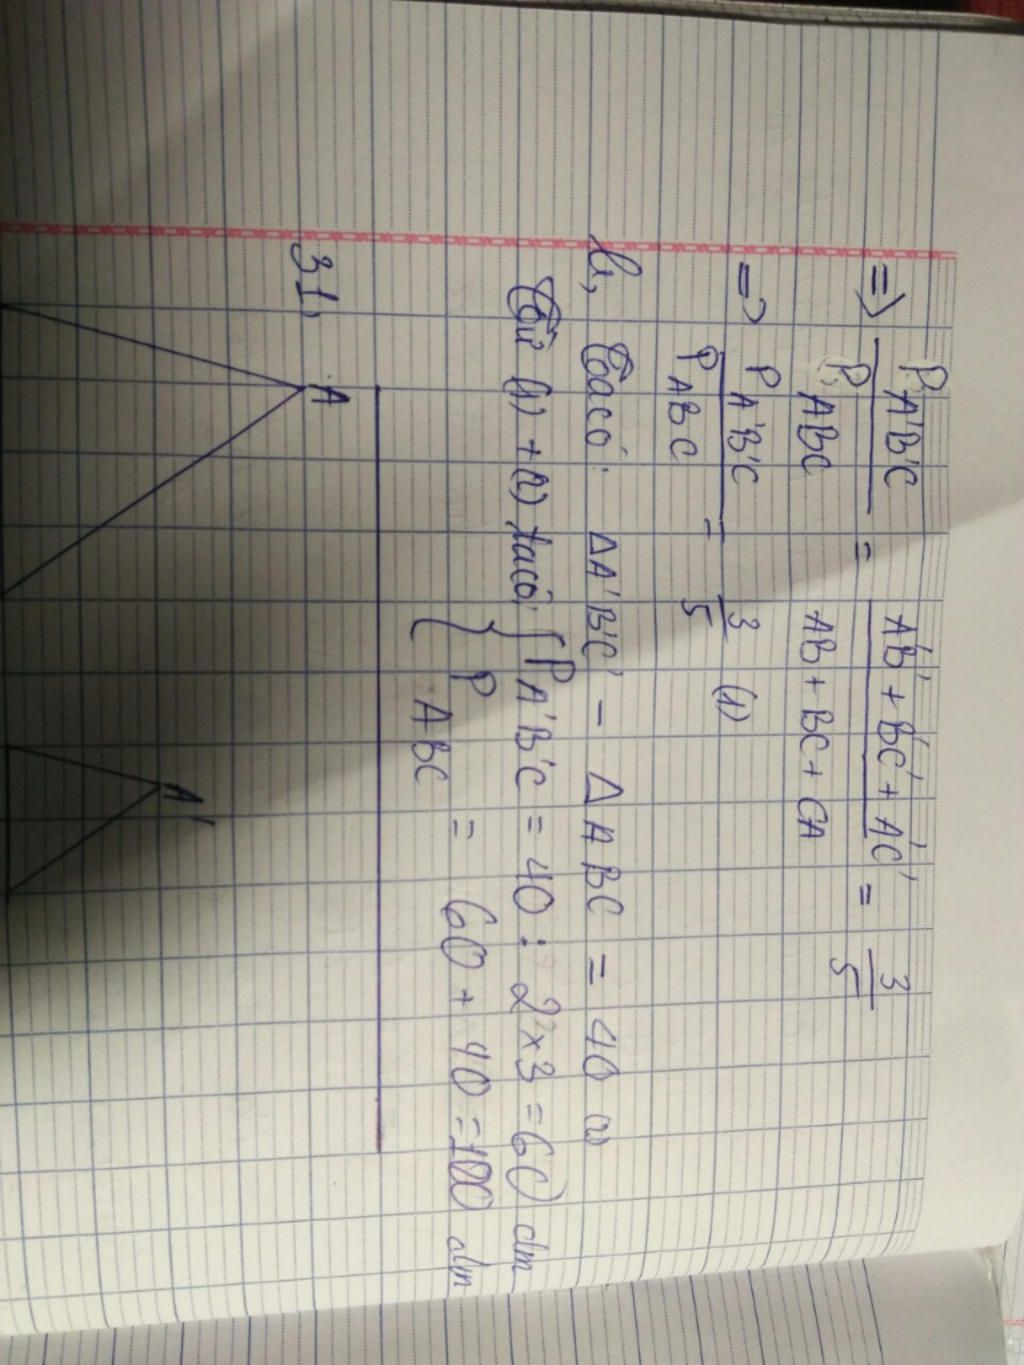 => P A'B'C / P ABC = A'B' + B'C' + A'C' / AB + BC + CA = 3/5
=> P A'B'C / P ABC = 3/5 (1)
b, Ta có: ΔA'B'C' - ΔABC = 40 (2)
Từ (1) + (2) ta có, { P A'B'C = 40 : 2 x 3 = 60 dm
{ P ABC = 60 + 40 = 100 dm
31,
A
A'